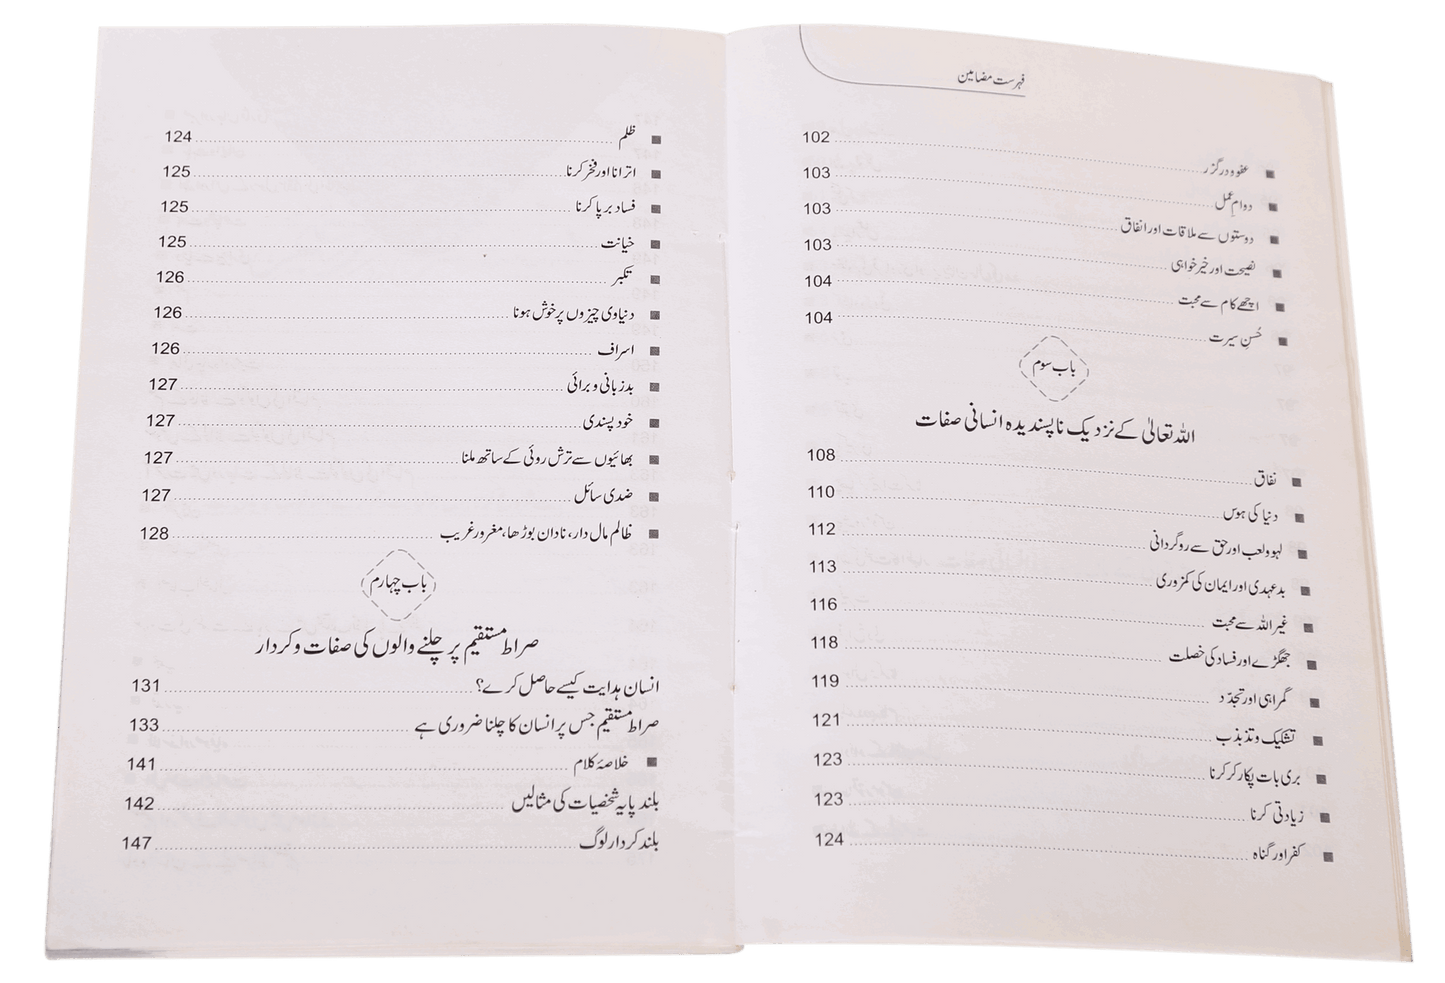 فہرست مضامین
■ عفو و درگزر 102
■ دوامِ عمل 103
■ دوستوں سے ملاقات اور انفاق 103
■ نصیحت اور خیر خواہی 103
■ اچھے کام سے محبت 104
■ حُسنِ سیرت 104
باب سوم
اللہ تعالیٰ کے نزدیک ناپسندیدہ انسانی صفات
■ نفاق 108
■ دنیا کی ہوس 110
■ لہو و لعب اور حق سے روگردانی 112
■ بدعہدی اور ایمان کی کمزوری 113
■ غیر اللہ سے محبت 116
■ جھگڑے اور فساد کی خصلت 118
■ گمراہی اور تجدّد 119
■ تشکیک و تذبذب 121
■ بری بات پکار کر کرنا 123
■ زیادتی کرنا 123
■ کفر اور گناہ 124
■ ظلم 124
■ اترانا اور فخر کرنا 125
■ فساد برپا کرنا 125
■ خیانت 125
■ تکبر 126
■ دنیاوی چیزوں پر خوش ہونا 126
■ اسراف 126
■ بدزبانی و برائی 127
■ خود پسندی 127
■ بھائیوں سے ترش روئی کے ساتھ ملنا 127
■ ضدی سائل 127
■ ظالم مال دار، نادان بوڑھا، مغرور غریب 128
باب چہارم
صراط مستقیم پر چلنے والوں کی صفات و کردار
انسان ہدایت کیسے حاصل کرے؟ 131
صراط مستقیم جس پر انسان کا چلنا ضروری ہے 133
■ خلاصۂ کلام 141
بلند پایہ شخصیات کی مثالیں 142
بلند کردار لوگ 147